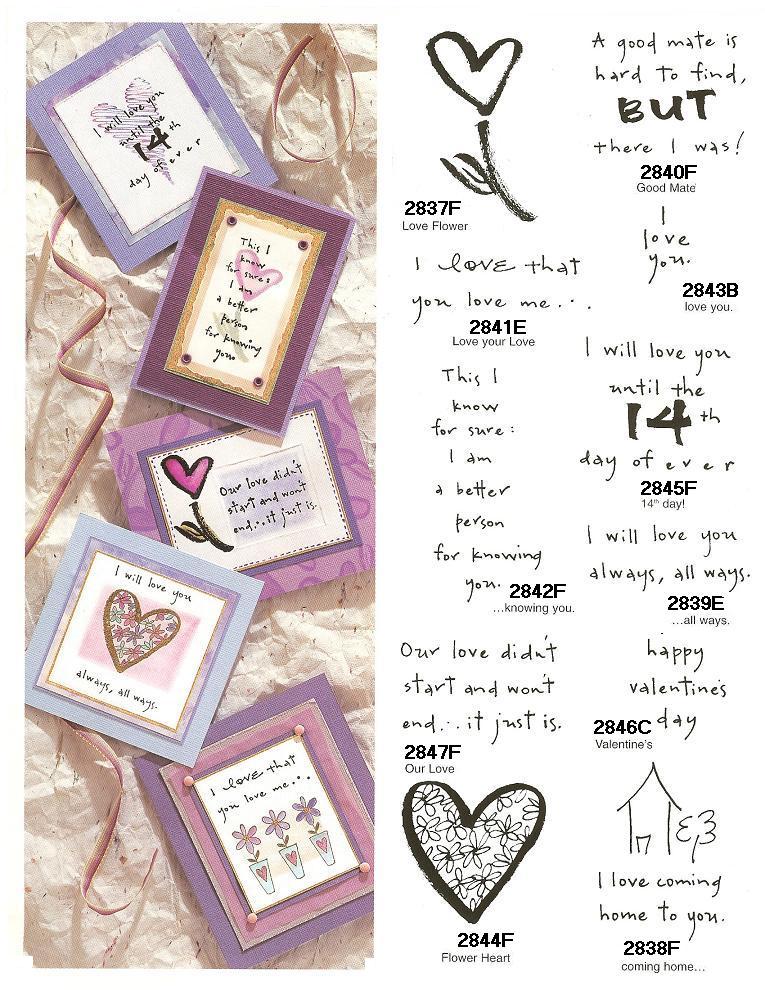 I will love you
until the
14th
day of ever
This I
know
for sure:
I am
a better
person
for knowing
you.
Our love didn't
start and won't
end...it just is.
I will love you
always, all ways.
I love that
you love me...
2837F
Love Flower
A good mate is
hard to find,
BUT
there I was!
2840F
Good Mate
I
love
you.
2843B
love you.
I love that
you love me...
2841E
Love your Love
I will love you
until the
14th
day of ever
2845F
14th day!
This I
know
for sure:
I am
a better
person
for knowing
you.
2842F
...knowing you.
I will love you
always, all ways.
2839E
...all ways.
Our love didn't
start and won't
end...it just is.
2847F
Our Love
happy
valentine's
day
2846C
Valentine's
2844F
Flower Heart
I love coming
home to you.
2838F
coming home...